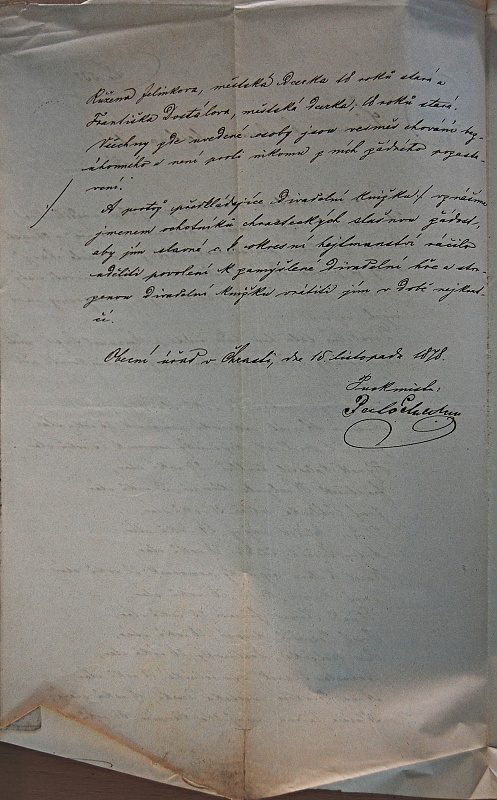 Růžena Jelínkova, městská dcerka 18 roků stará a
Františka Dostálova, městská dcerka, 18 roků stará.
Všechny zde uvedené osoby jsou vesměs chování
a není proti nikomu z nich žádného
A protož předkládajíce divadelní knížku ./. uprášeme
jmenem ochotníků chrasteckých slušnou žádost,
aby jim slavné c. k. okresní hejtmanství račilo
uděliti povolení k zamýšlené divadelní hře a
divadelní knížku vrátiti jim v době nejkrat-
ší.
./.
Obecní úřad v Chrasti, dne 15. listopadu 1878.
Purkmistr: